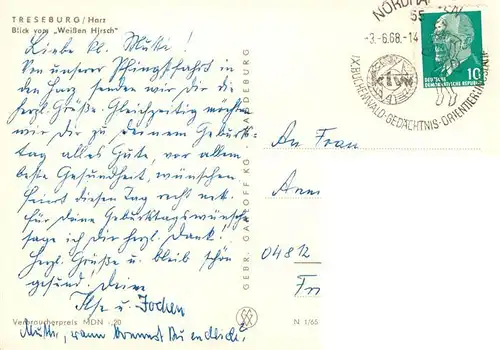 TRESEBURG/Harz
Blick vom „Weißen Hirsch"
Liebe kl. Mutti!
Von unserer Pfingstfahrt in
den Harz senden wir dir die
herzl. Grüße. Gleichzeitig möchten
wir dir zu deinem Geburts-
tag alles Gute, vor allem
beste Gesundheit, wünschen
feiert diesen Tag recht nett.
Für deine Geburtstagswünsche
sage ich dir herzl. Dank!
Herzl. Grüße u. bleib schön
gesund! Deine
Ilse u. Jochen
Mutti, wann kommst Du endlich?
Verbraucherpreis MDN -,20
N 1/65
GEBR. GARLOFF KG · MAGDEBURG
NORDHAUSEN
55
-3.-6.68.-14
IX. BUCHENWALD-GEDÄCHTNIS-ORIENTIERUNGS
DEUTSCHE
DEMOKRATISCHE REPUBLIK
10
An Frau
Ann
04812